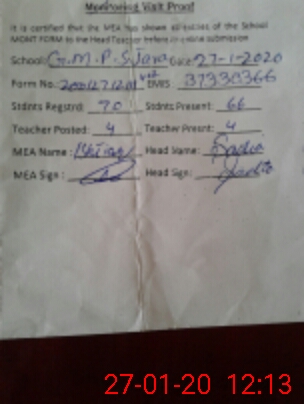 Monitoring Visit Proof
It is certified that the MEA has shown all entries of the School
MONT FORM to the Head Teacher before online submission
School: G.M.P.S Java Date: 27-1-2020
Form No. EMIS: 37330366
Stdnts Regstrd: 70 Stdnts Present: 66
Teacher Posted: 4 Teacher Presnt: 4
MEA Name: Head Name: Sadia
MEA Sign: Head Sign:
27-01-20 12:13